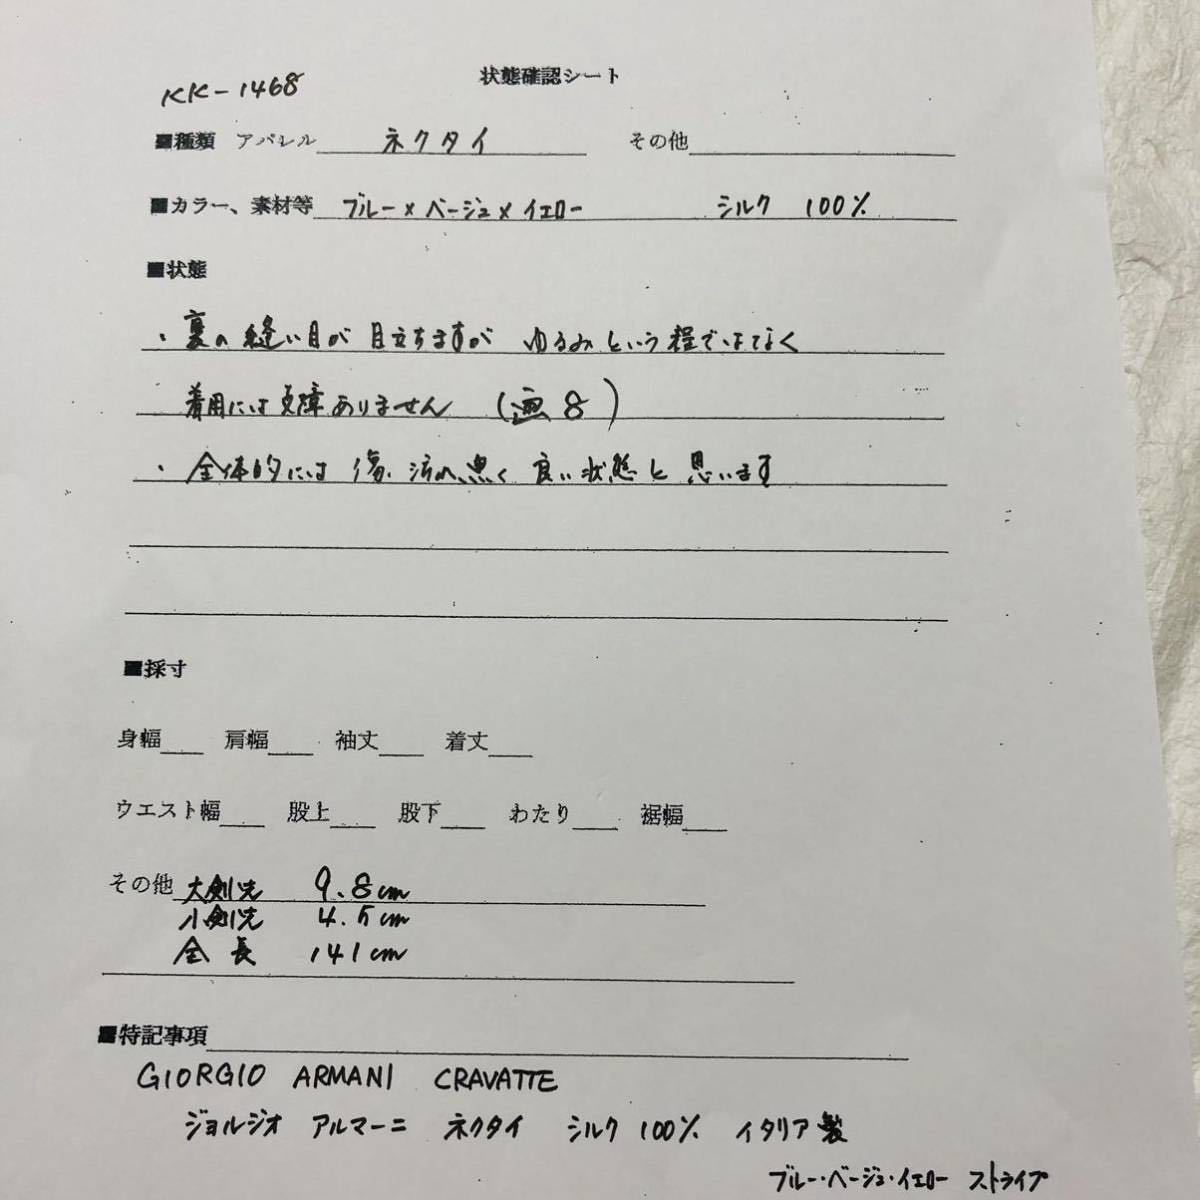 状態確認シート
KK-1468
■種類 アパレル ネクタイ その他
■カラー、素材等 ブルー×ベージュ×イエロー シルク 100%
■状態
・裏の縫い目が目立ちますが ゆるみという程ではなく
着用には支障ありません (画8)
・全体的には傷、汚れ無く良い状態と思います
■採寸
身幅 肩幅 袖丈 着丈
ウエスト幅 股上 股下 わたり 裾幅
その他 大剣先 9.8cm
小剣先 4.5cm
全長 141cm
■特記事項
GIORGIO ARMANI CRAVATTE
ジョルジオ アルマーニ ネクタイ シルク 100% イタリア製
ブルー・ベージュ・イエロー ストライプ